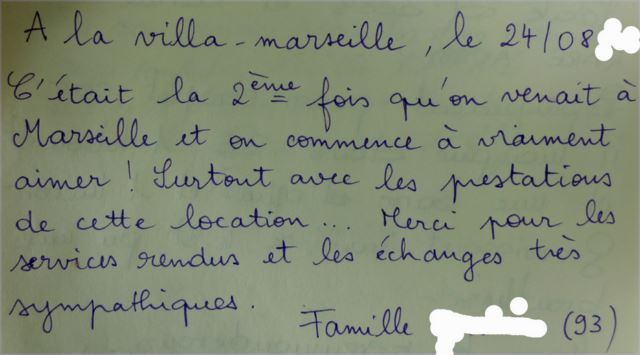 A la villa-marseille, le 24/08
C'était la 2ème fois qu'on venait à
Marseille et on commence à vraiment
aimer ! Surtout avec les prestations
de cette location... Merci pour les
services rendus et les échanges très
sympathiques.
Famille (93)